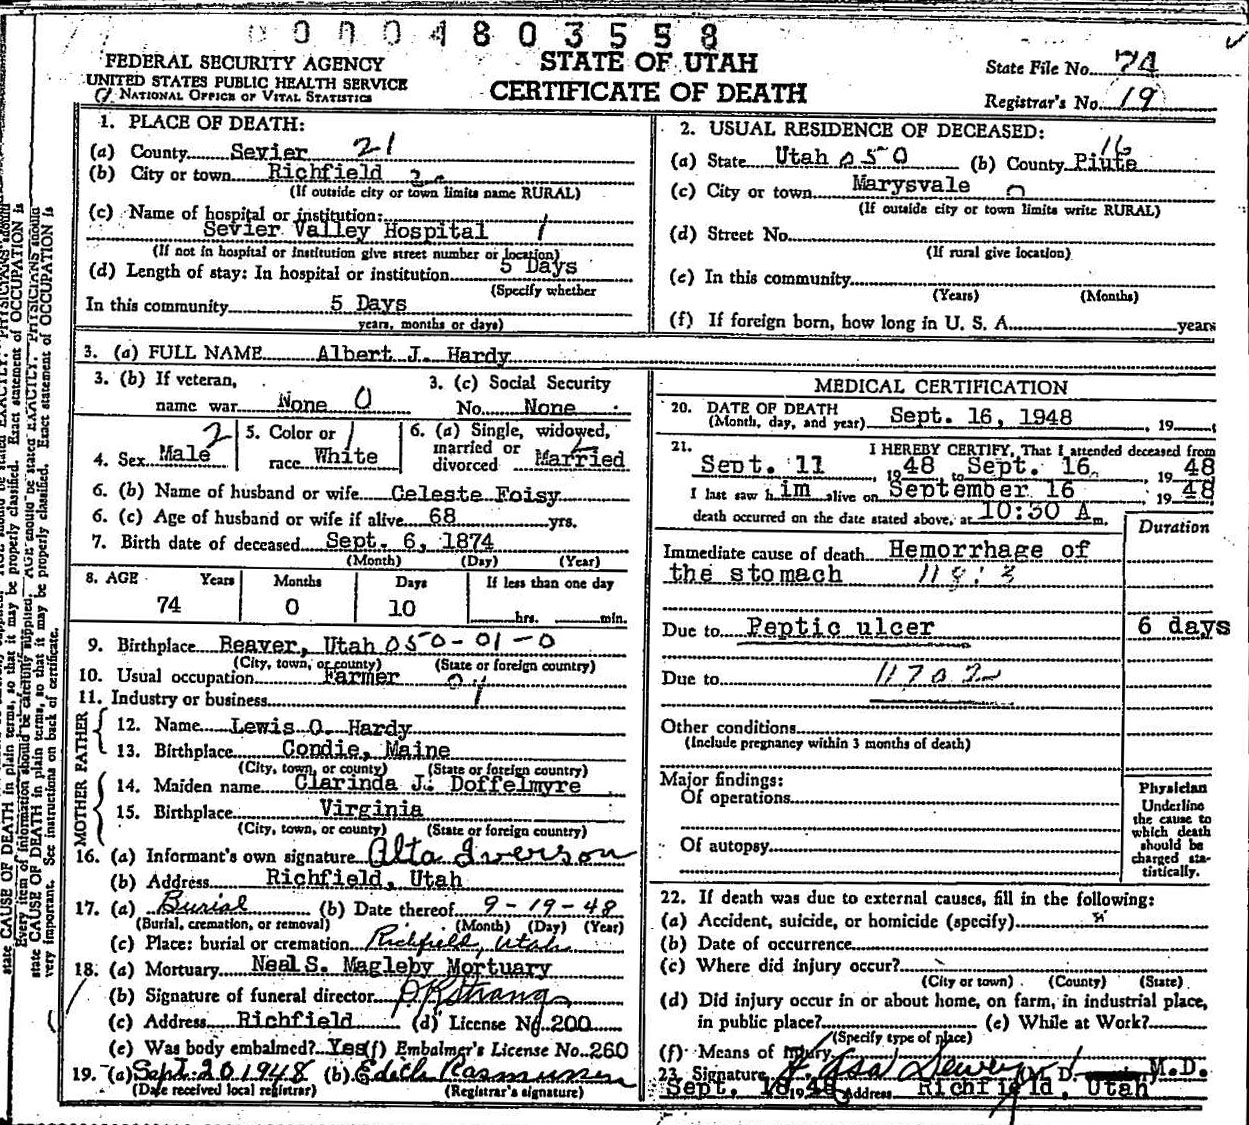 0004803558
FEDERAL SECURITY AGENCY
UNITED STATES PUBLIC HEALTH SERVICE
NATIONAL OFFICE OF VITAL STATISTICS
STATE OF UTAH
CERTIFICATE OF DEATH
State File No. 74
Registrar's No. 19
1. PLACE OF DEATH:
(a) County Sevier 21
(b) City or town Richfield
(If outside city or town limits name RURAL)
(c) Name of hospital or institution:
Sevier Valley Hospital 1
(If not in hospital or institution give street number or location)
(d) Length of stay: In hospital or institution 5 Days
(Specify whether
In this community 5 Days
years, months or days)
2. USUAL RESIDENCE OF DECEASED:
(a) State Utah 050 (b) County Piute 16
(c) City or town Marysvale 0
(If outside city or town limits write RURAL)
(d) Street No.
(If rural give location)
(e) In this community
(Years) (Months)
(f) If foreign born, how long in U. S. A. years
3. (a) FULL NAME Albert J. Hardy
3. (b) If veteran, name war None 0
3. (c) Social Security No. None
4. Sex Male 2
5. Color or race White 1
6. (a) Single, widowed, married or divorced Married 2
6. (b) Name of husband or wife Celeste Foisy
6. (c) Age of husband or wife if alive 68 yrs.
7. Birth date of deceased Sept. 6, 1874
(Month) (Day) (Year)
8. AGE Years Months Days If less than one day
74 0 10 hrs. min.
9. Birthplace Beaver, Utah 050-01-0
(City, town, or county) (State or foreign country)
10. Usual occupation Farmer
11. Industry or business
FATHER
12. Name Lewis O. Hardy
13. Birthplace Condie, Maine
(City, town, or county) (State or foreign country)
MOTHER
14. Maiden name Clarinda J. Doffelmyre
15. Birthplace Virginia
(City, town, or county) (State or foreign country)
16. (a) Informant's own signature Alta Iverson
(b) Address Richfield, Utah
17. (a) Burial (b) Date thereof 9-19-48
(Burial, cremation, or removal) (Month) (Day) (Year)
(c) Place: burial or cremation Richfield, Utah
18. (a) Mortuary Neal S. Magleby Mortuary
(b) Signature of funeral director
(c) Address Richfield (d) License No. 200
(e) Was body embalmed? Yes (f) Embalmer's License No. 260
19. (a) Sept. 20 1948 (b) Edith Rasmussen
(Date received local registrar) (Registrar's signature)
MEDICAL CERTIFICATION
20. DATE OF DEATH
(Month, day, and year) Sept. 16, 1948, 19
21. I HEREBY CERTIFY, That I attended deceased from
Sept. 11, 1948 to Sept. 16, 1948
I last saw him alive on September 16 1948
death occurred on the date stated above, at 10:30 A m.
Duration
Immediate cause of death Hemorrhage of
the stomach
Due to Peptic ulcer 6 days
Due to 11702
Other conditions
(Include pregnancy within 3 months of death)
Major findings:
Of operations
Of autopsy
Physician
Underline
the cause to
which death
should be
charged sta-
tistically.
22. If death was due to external causes, fill in the following:
(a) Accident, suicide, or homicide (specify)
(b) Date of occurrence
(c) Where did injury occur?
(City or town) (County) (State)
(d) Did injury occur in or about home, on farm, in industrial place,
in public place? (e) While at Work?
(Specify type of place)
(f) Means of Injury
23 Signature M.D.
Sept. 18 1948 Address Richfield, Utah